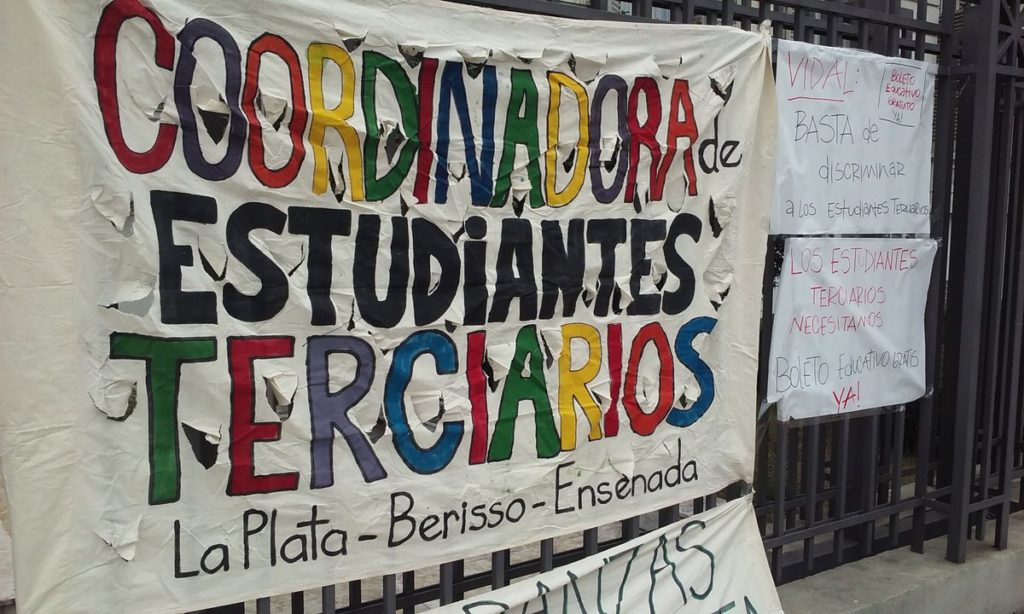 COORDINADORA de
ESTUDIANTES
TERCIARIOS
La Plata - Berisso - Ensenada
VIDAL:
BOLETO
EDUCATIVO
GRATUITO
YA!
BASTA de
discriminar
a los Estudiantes Terciarios
LOS ESTUDIANTES
TERCIARIOS
NECESITAMOS
BOLETO EDUCATIVO GRATIS
YA!